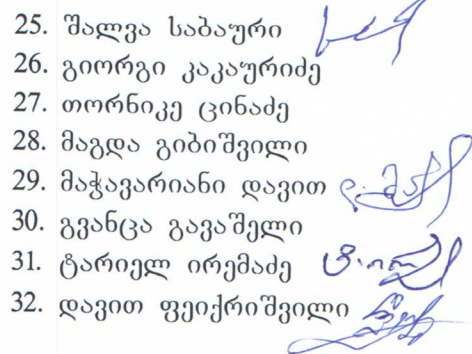 25. შალვა საბაური
26. გიორგი კაკაურიძე
27. თორნიკე ცინაძე
28. მაგდა გიბიშვილი
29. მაჭავარიანი დავით
30. გვანცა გავაშელი
31. ტარიელ ირემაძე
32. დავით ფეიქრიშვილი